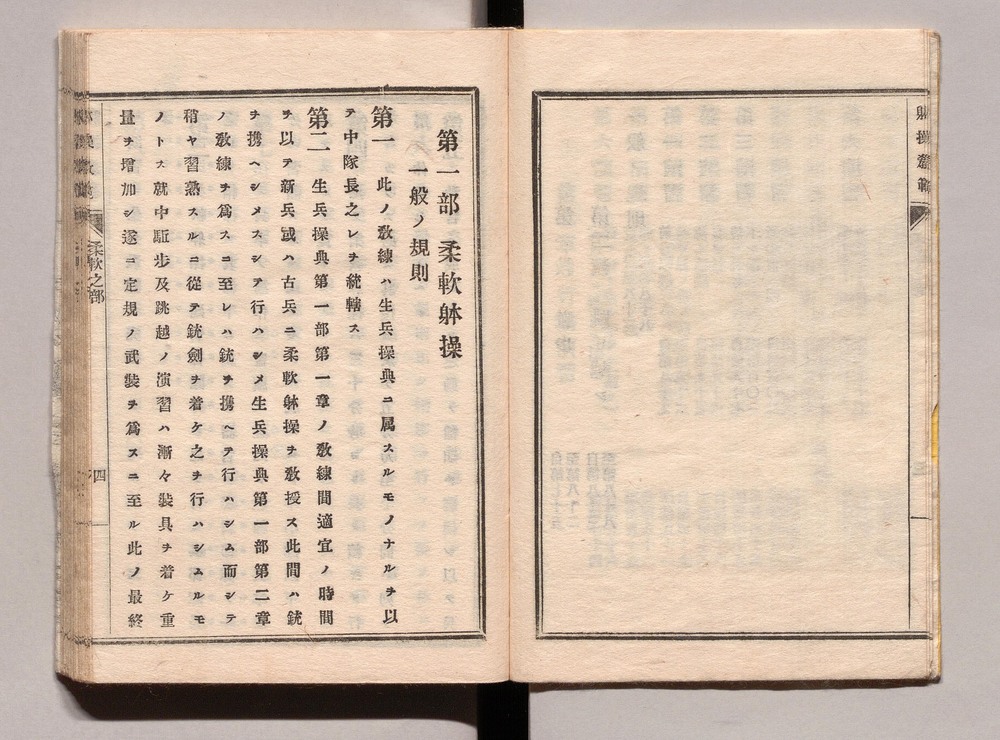 躰操敎範
三
第一部 柔軟躰操
一般ノ規則
第一 此ノ敎練ハ生兵操典ニ属スルモノナルヲ以
テ中隊長之レヲ統轄ス
第二 生兵操典第一部第一章ノ敎練間適宜ノ時間
ヲ以テ新兵或ハ古兵ニ柔軟躰操ヲ敎授ス此間ハ銃
ヲ携ヘシメスシテ行ハシメ生兵操典第一部第二章
ノ敎練ヲ爲スニ至レハ銃ヲ携ヘテ行ハシム而シテ
稍ヤ習熟スルニ從テ銃劍ヲ着ケ之ヲ行ハシムルモ
ノトス就中駈步及跳越ノ演習ハ漸々裝具ヲ着ケ重
量ヲ增加シ遂ニ定規ノ武裝ヲ爲スニ至ル此ノ最終
柔軟之部
四